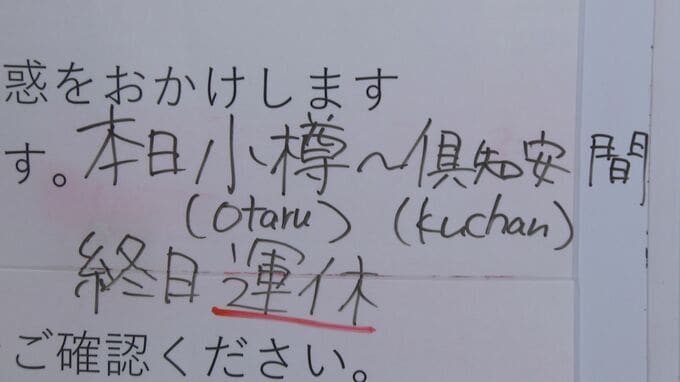 惑をおかけします
す。本日小樽~倶知安間
(Otaru) (Kuchan)
終日運休
ご確認ください。